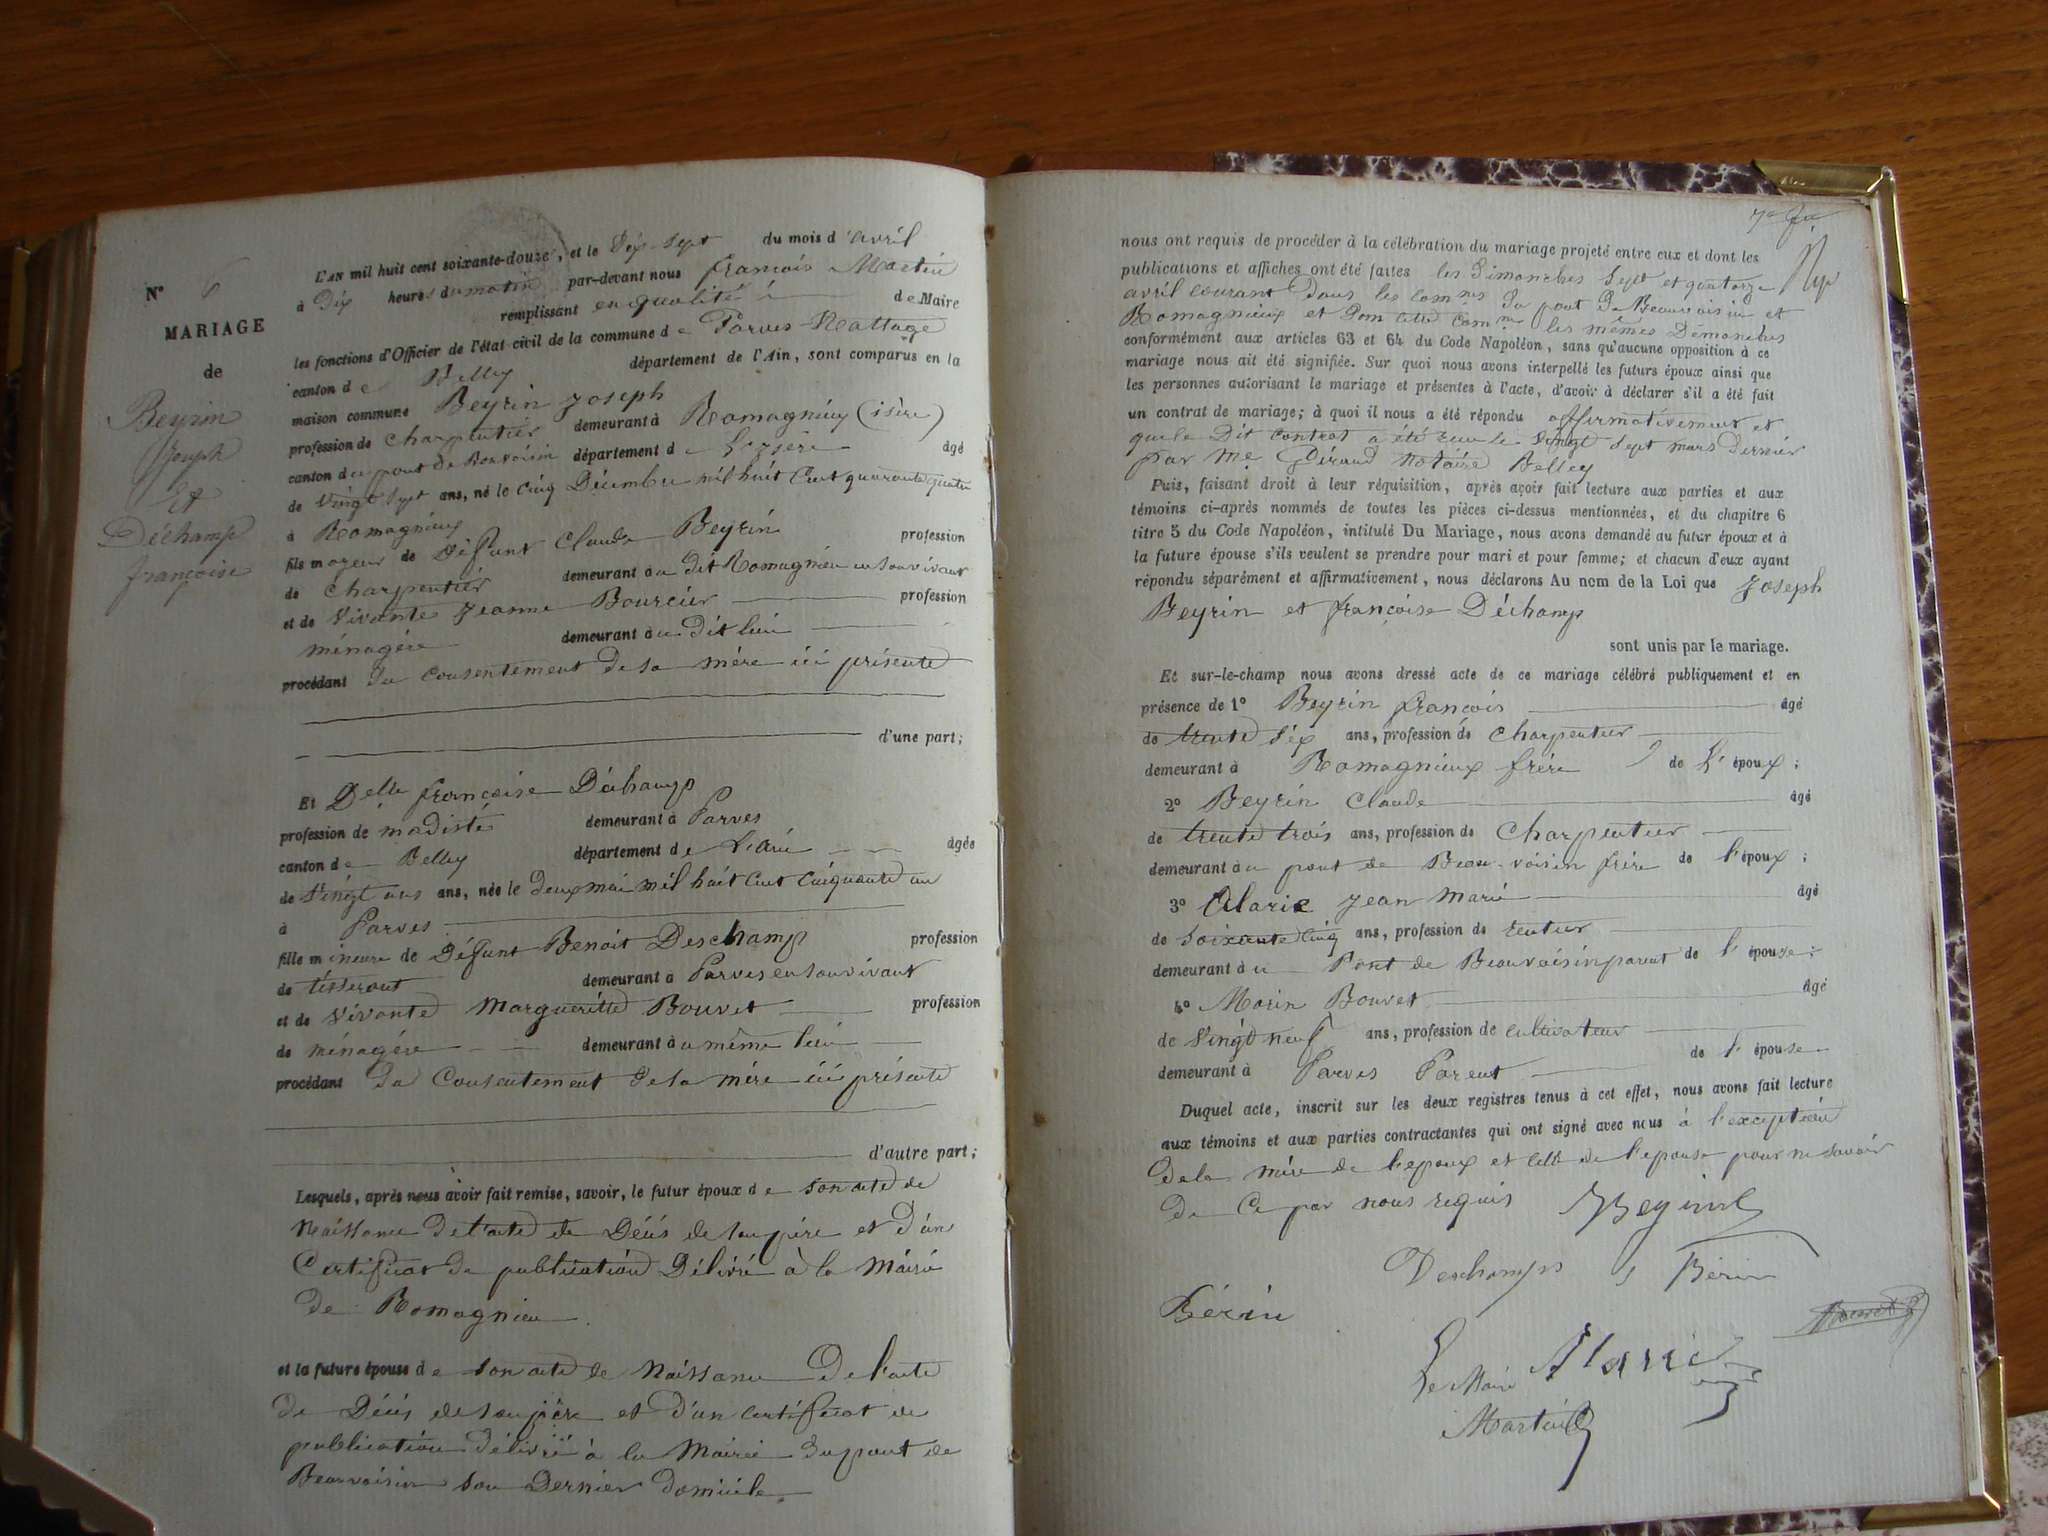 N° 6
MARIAGE
de
Beyrin
Joseph
Et
Déchamp
françoise
L'AN mil huit cent soixante-douze, et le Dix-Sept du mois d'avril
à Dix heures du matin par-devant nous françois Martin
remplissant en qualité de Maire
les fonctions d'Officier de l'état civil de la commune de Parves-Nattage
canton de Belley département de l'Ain, sont comparus en la
maison commune Beyrin Joseph
profession de charpentier demeurant à Romagnieu (isère)
canton du pont de Bonvoisin département de l'izère âgé
de vingt Sept ans, né le cinq Décembre mil huit Cent quarante quatre
à Romagnieux
fils majeur de Défunt Claude Beyrin profession
de charpentier demeurant au dit Romagnieu en Son vivant
et de vivante Jeanne Bourcier profession
ménagère demeurant au dit lieu
procédant du consentement de sa mère ici présente
d'une part;
Et Delle françoise Déchamp
profession de modiste demeurant à Parves
canton de Belley département de l'Ain âgée
de Vingt ans ans, née le Deux mai mil huit Cent Cinquante un
à Parves
fille mineure de Défunt Benoit Deschamp profession
de tisserant demeurant à Parves en Son vivant
et de vivante Margueritte Bouvet profession
de ménagère demeurant au même lieu
procédant du Consentement de sa mère ici présente
d'autre part;
Lesquels, après nous avoir fait remise, savoir, le futur époux de son acte de
Naissance de l'acte de Décès de son père et d'un
Certificat de publication Délivré à la Mairie
de Romagnieu
et la future épouse de son acte de Naissance de l'acte
de Décès de son père et d'un certificat de
publication délivré à la Mairie du pont de
Beauvoisin son Dernier domicile
nous ont requis de procéder à la célébration du mariage projeté entre eux et dont les
publications et affiches ont été faites les Dimanches Sept et quatorze
avril courant Dans les Commnes du pont De Beauvoisin et
Romagnieux et Dans cette Commne les mêmes Dimanches
conformément aux articles 63 et 64 du Code Napoléon, sans qu'aucune opposition à ce
mariage nous ait été signifiée. Sur quoi nous avons interpellé les futurs époux ainsi que
les personnes autorisant le mariage et présentes à l'acte, d'avoir à déclarer s'il a été fait
un contrat de mariage; à quoi il nous a été répondu affirmativement et
que le Dit contrat a été reçu le Vingt Sept mars dernier
par Me Géraud notaire Belley
Puis, faisant droit à leur réquisition, après avoir fait lecture aux parties et aux
témoins ci-après nommés de toutes les pièces ci-dessus mentionnées, et du chapitre 6
titre 5 du Code Napoléon, intitulé Du Mariage, nous avons demandé au futur époux et à
la future épouse s'ils veulent se prendre pour mari et pour femme; et chacun d'eux ayant
répondu séparément et affirmativement, nous déclarons Au nom de la Loi que Joseph
Beyrin et françoise Déchamp
sont unis par le mariage.
Et sur-le-champ nous avons dressé acte de ce mariage célébré publiquement et en
présence de 1° Beyrin françois âgé
de trente Six ans, profession de Charpentier
demeurant à Romagnieux frère de l'époux;
2° Beyrin Claude âgé
de trente trois ans, profession de Charpentier
demeurant au pont de Beau-voisin frère de l'époux;
3° Alaric Jean Marie âgé
de Soixante cinq ans, profession de rentier
demeurant au Pont de Beauvoisin parent de l'épouse;
4° Marin Bouvet âgé
de Vingt neuf ans, profession de cultivateur
demeurant à Parves Parent de l'épouse
Duquel acte, inscrit sur les deux registres tenus à cet effet, nous avons fait lecture
aux témoins et aux parties contractantes qui ont signé avec nous à l'exception
de la mère de l'époux et celle de l'épouse pour ne savoir
de Ce par nous requis
Deschamps Bérin
Bérin
Alaric
Le Maire
Martin